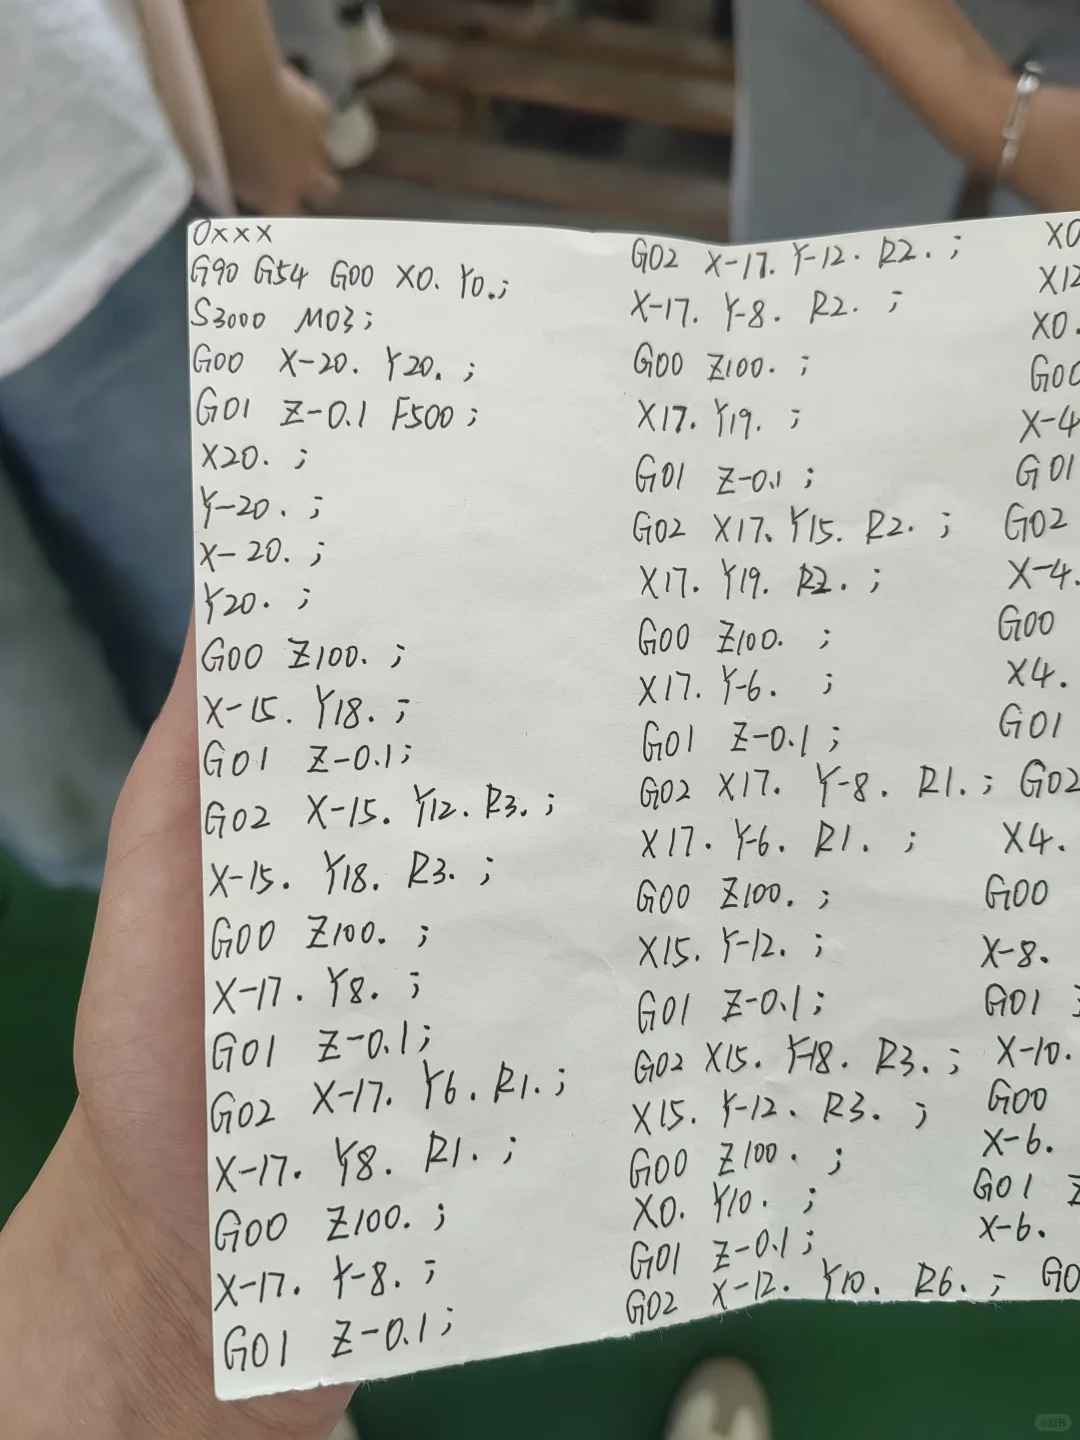 Oxxx
G90 G54 G00 X0. Y0.;
S3000 M03;
G00 X-20. Y20. ;
G01 Z-0.1 F500 ;
X20. ;
Y-20. ;
X-20. ;
Y20. ;
G00 Z100. ;
X-15. Y18. ;
G01 Z-0.1;
G02 X-15. Y12. R3. ;
X-15. Y18. R3. ;
G00 Z100. ;
X-17. Y8. ;
G01 Z-0.1;
G02 X-17. Y6. R1. ;
X-17. Y8. R1. ;
G00 Z100. ;
X-17. Y-8. ;
G01 Z-0.1;
G02 X-17. Y-12. R2. ;
X-17. Y-8. R2. ;
G00 Z100. ;
X17. Y19. ;
G01 Z-0.1 ;
G02 X17. Y15. R2. ;
X17. Y19. R2. ;
G00 Z100. ;
X17. Y-6. ;
G01 Z-0.1 ;
G02 X17. Y-8. R1. ;
X17. Y-6. R1. ;
G00 Z100. ;
X15. Y-12. ;
G01 Z-0.1;
G02 X15. Y-18. R3. ;
X15. Y-12. R3. ;
G00 Z100. ;
X0. Y10. ;
G01 Z-0.1;
G02 X-12. Y10. R6. ;
X0
X12
X0.
G00
X-4
G01
G02
X-4.
G00
X4.
G01
G02
X4.
G00
X-8.
G01
X-10.
G00
X-6.
G01
X-6.
G0